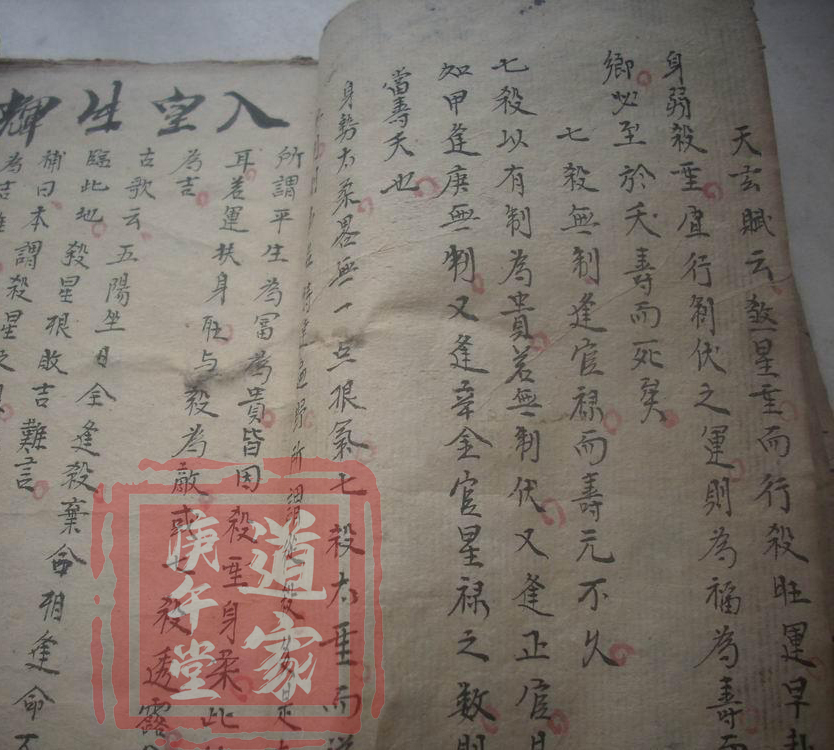 天玄賦云殺星重而行殺旺運早
身弱殺重宜行制伏之運則為福為壽
鄉必至於夭壽而死矣
七殺無制逢官禄而壽元不久
七殺以有制為貴若無制伏又逢正官
如甲逢庚無制又逢辛金官星禄之数
當壽夭也
身勢太柔畧無一点根氣七殺太重而
入空生輝
所謂平生為冨為貴皆因殺重身柔此
耳若運扶身旺与殺為敵或七殺透露
為吉
古歌云五陽坐日全逢殺棄命相逢命不
臨此地殺星根敗吉難言
補曰本謂殺星
為吉
道家
庚午堂